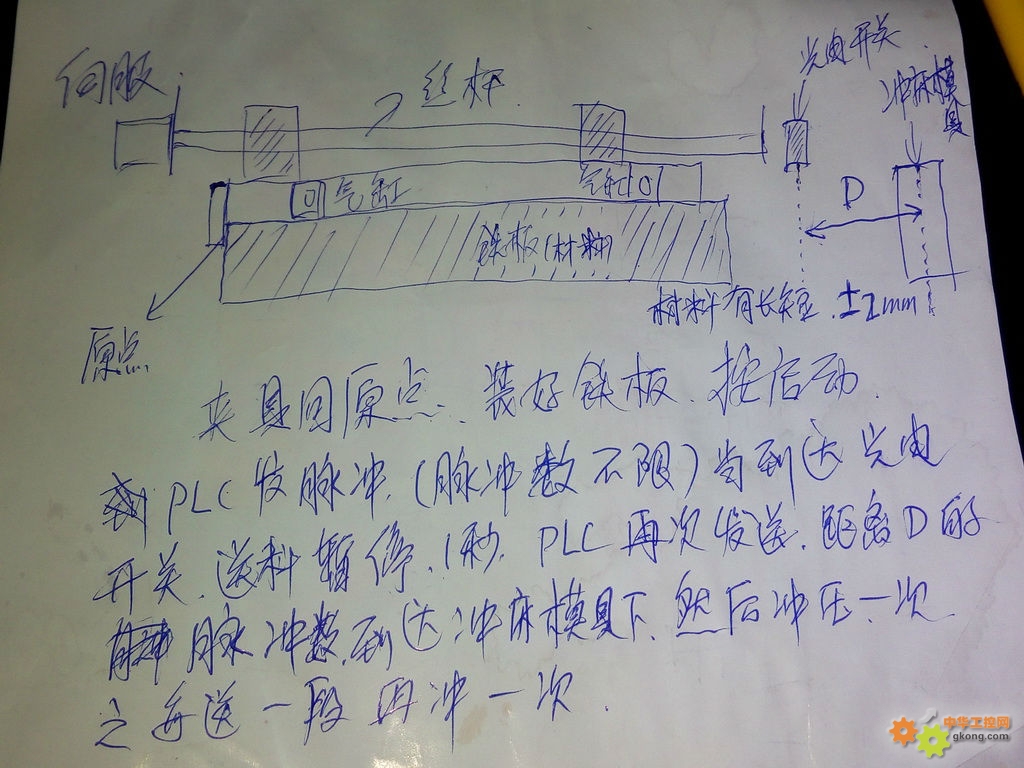 伺服
丝杆
光电开关
冲床模具
气缸
气缸
D
铁板(材料)
材料有长短 ±2mm
原点
夹具回原点、装好铁板、按启动.
PLC发脉冲.(脉冲数不限)当到达光电
开关.送料暂停.1秒.PLC再次发送.距离D的
脉冲数.到达冲床模具下.然后冲压一次
之后送一段再冲一次.
中华工控网
gkong.com